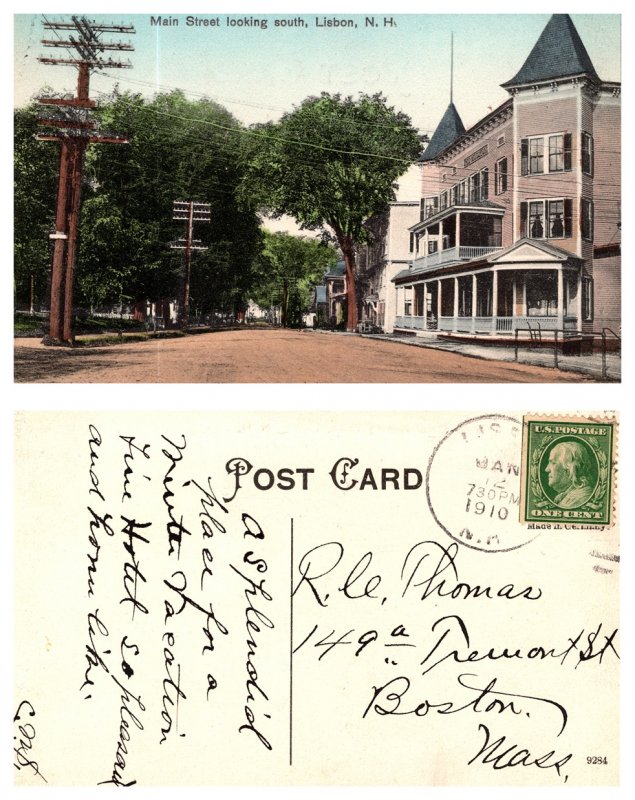 Main Street looking south, Lisbon, N. H.
POST CARD
LISB
JAN
12
730PM
1910
N.H
U.S. POSTAGE
ONE CENT
Made in Germany
A Splendid
place for a
Winter Vacation
Fine Hotel so pleasant
and home like.
C.M.S.
R. C. Thomas
149 a Tremont St
Boston.
Mass.
9284